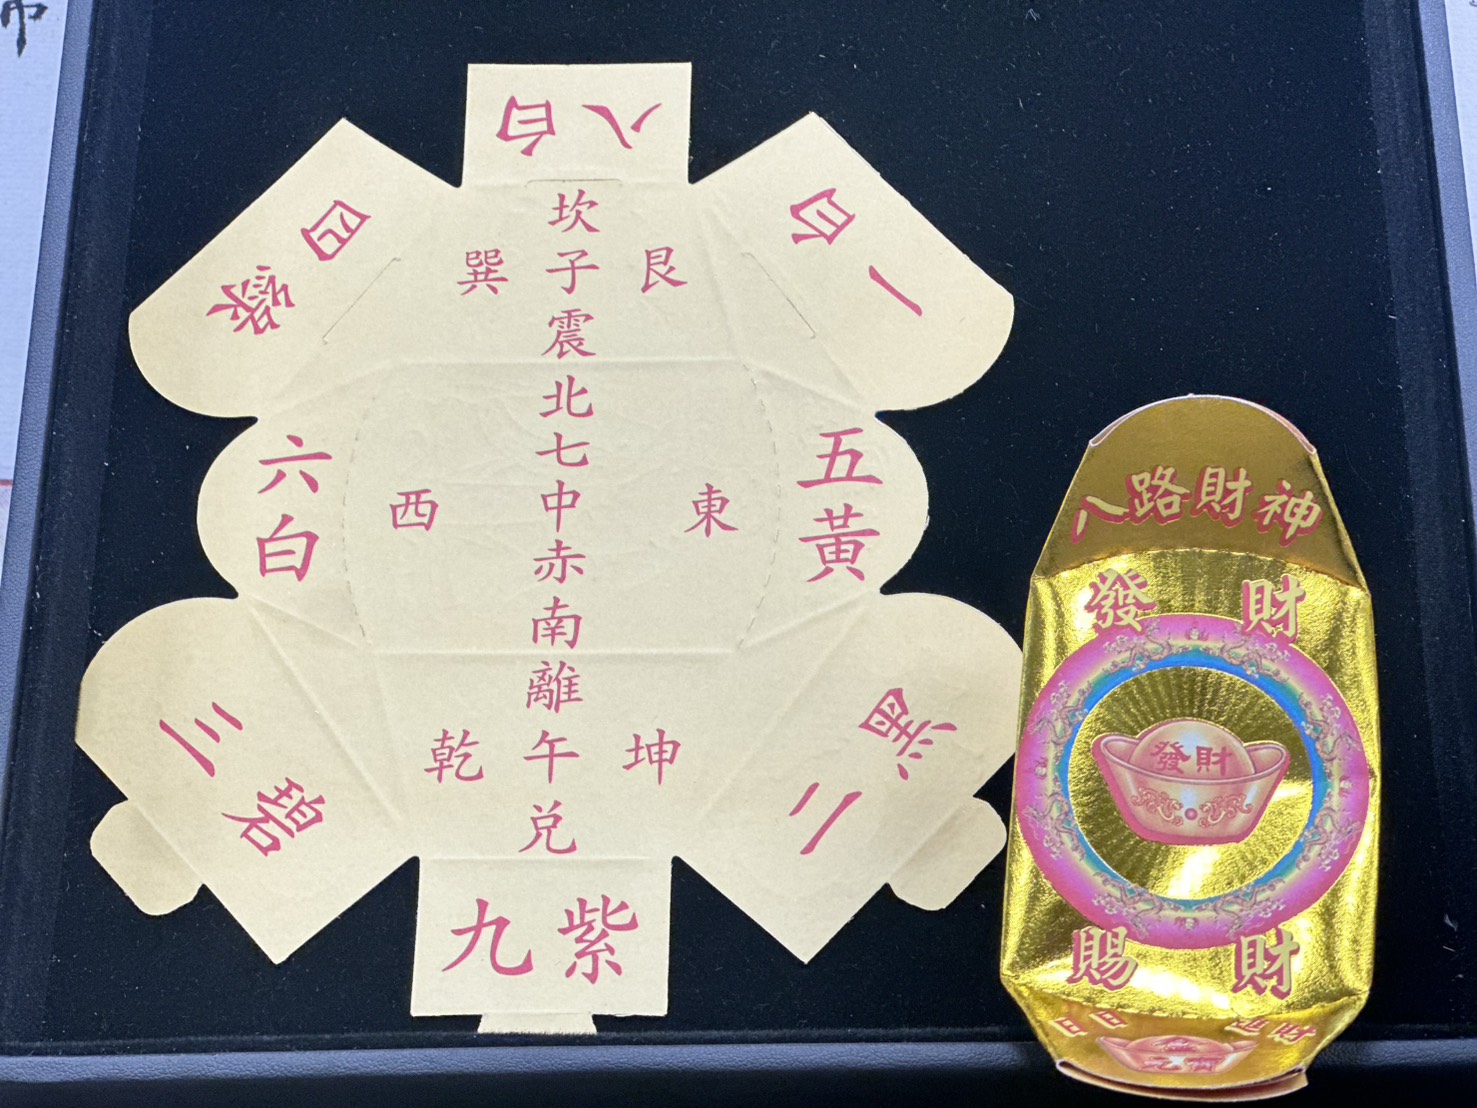 八白
四綠
一白
坎子震北七中赤南離午兑
巽
艮
六白
西
東
五黃
三碧
乾
坤
二黑
九紫
八路財神
發財
發財
賜財
日日進財